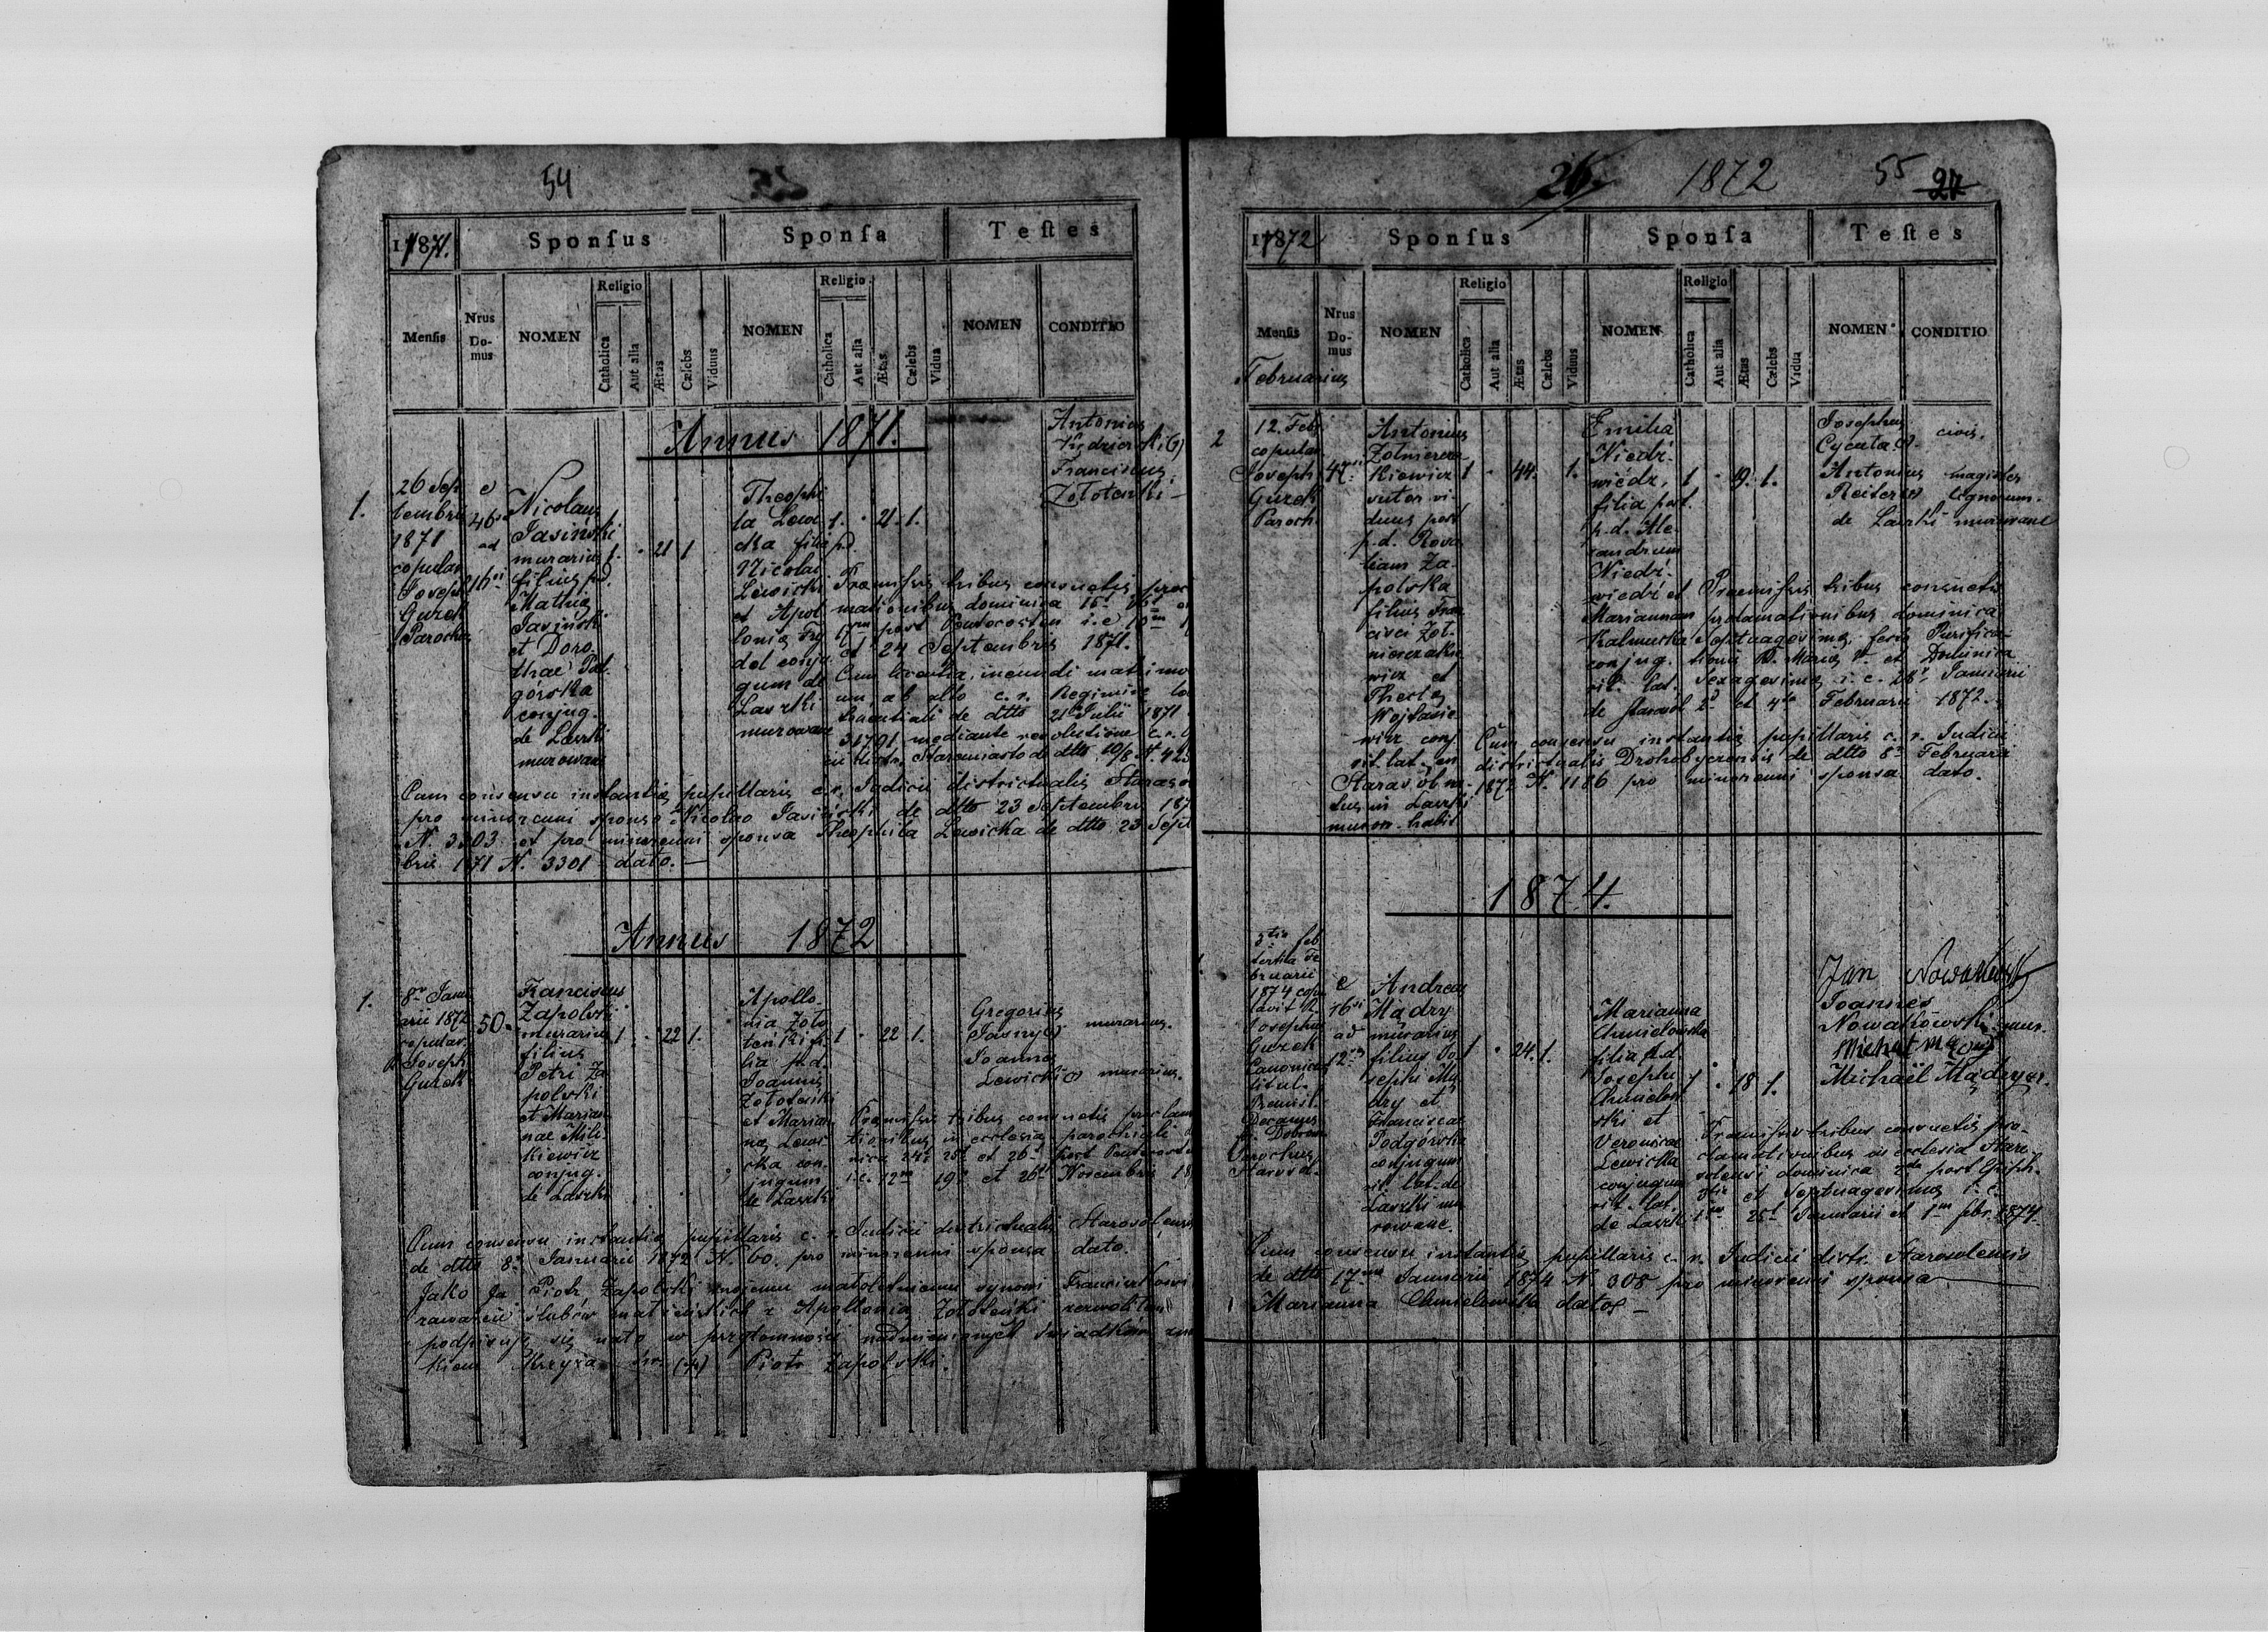 54
1871.
Sponsus
Sponsa
Testes
Mensis
Nrus Domus
NOMEN
Religio
Catholica
Aut alia
Ætas
Cælebs
Viduus
NOMEN
Religio
Catholica
Aut alia
Ætas
Cælebs
Vidua
NOMEN
CONDITIO
Annus 1871.
Antonius
Franciscus
1.
26 Sep
tembris
1871
copulav.
Joseph
Gurek
Parochus
e
46
ad
Nicolaus
Jasiński
murarius
filius p.d.
Mathiæ
Jasiński
et Doro-
thae Pod-
górska
conjug.
de Laszki
murowane
1. · 21 1
Theophi
la Lewi
cka filia p.d.
Nicolai
Lewicki
et Apol
lonia
conju
gum de
Laszki
murowane
1. · 21. 1.
Præmissis tribus consuetis procla
mationibus dominica 15a 16a et
17ma post Pentecosten i.e. 10ma 17
et 24 Septembris 1871.
Cum licentia, ineundi matrimo
Cum consensu instantiæ pupillaris c.r. Judicii districtualis Staraso
pro minorenni sponso Nicolao Jasiński de dtto 23 Septembris 187
N. 3303 et pro minorenni sponsa Theophila Lewicka de dtto 23 Sept
bris 1871 N. 3301 dato.—
Annus 1872
1.
8a Janu
arii 1872
copulav.
Joseph
Gurek
50.
Franciscus
Zapolski
murarius
filius
Petri Za
polski
et Marian
nae Mile
kiewicz
conjug.
de Laszki
1. · 22 1.
Apollo-
nia Zoło
teńki fi
lia p.d.
Joannis
Zołoteński
et Marian
nae Lewi
cka con
jugum
de Laszki
1 · 22. 1.
Gregorius
Jasny murarius.
Joannes
Lewicki murarius.
Præmissis tribus consuetis proclama
tionibus in ecclesia parochiali
nica 24a 25a et 26a post Pentecosten
i.e. 12ma 19a et 26ta Novembris 18
Cum consensu instantiæ pupillaris c. r. Judicii districtualis Starosolensis
de dtto 8a Januarii 1872 N. 60. pro minorenni sponsa dato.
Jako Ja Piotr Zapolski mojemu małoletniemu synowi Franciszkowi
zawarcia ślubów małżeńskich z Apollonią Zołoteńki zezwoliłem
podpisuję się na to w przytomności nadmienionych świadków zna
kiem Krzyża (+) Piotr Zapolski.
26
1872
55
27
1872
Sponsus
Sponsa
Testes
Mensis
Nrus Domus
NOMEN
Religio
Catholica
Aut alia
Ætas
Cælebs
Viduus
NOMEN
Religio
Catholica
Aut alia
Ætas
Cælebs
Vidua
NOMEN
CONDITIO
Februarius
2
12. Feb.
copulav.
Joseph
Gurek
Paroch.
Antonius
Żołniercza
kiewicz
sutor vi-
duus post
p.d. Rosa
liam Za
polska
filius Fran
cisci Żoł-
nierczakie
wicz et
Theclæ
Wojtasie
wicz conj.
rit. lat. en
Starasól na
tus in Laszki
murow. habit
1 · 44. 1.
Emilia
Niedź-
wiedź,
filia post.
p.d. Ale-
xandrum
Niedź-
wiedź et
Mariannam
Kalmuska
conjug.
rit. lat.
de Starasól
1 · 19. 1.
Josephus
Cycuta civis.
Antonius magister
Reiterer lignorum.
de Laszki murowane
Præmissis tribus consuetis
proclamationibus dominica
Septuagesima, festo Purifica-
tionis B. Mariæ V. et Dominica
Sexagesima i.e. 28a Januarii
2a et 4ta Februarii 1872.
Cum consensu instantiæ pupillaris c. r. Judicii
districtualis Drohobycensis de dtto 8a Februarii
1872 N. 1186 pro minorenni sponsa dato.
1874.
5tia feb.
tertia Fe
bruarii
1874 copu
lavit R.
Josephus
Gurek
Canonicus
titul.
Premisl.
Decanus
Parochus
Starosol.
e
16
ad
12
Andreas
Mądry
murarius
filius Jo
sephi Mą
dry et
Francisca
Podgórska
conjugum
rit. lat. de
Laszki mu
rowane.
1 · 24. 1.
Marianna
Chmielowska
filia p.d.
Josephi
Chmielow
ski et
Veronica
Lewicka
conjugum
rit. lat.
de Laszki
1 · 18 1.
Jan Nowakowski
Joannes
Nowakowski mur.
Michał Mądry
Michaël Mądry
Præmissis tribus consuetis pro-
clamationibus in ecclesia Staro
solensi dominica 2da post Epiph.
3tia et Septuagesima i.e.
25a Januarii et 1ma febr. 1874.
Cum consensu instantiæ pupillaris c. r. Judicii distr. Starosolensis
de dtto 17ma Januarii 1874 N. 308 pro minorenni sponsa
Marianna Chmielowska dato —